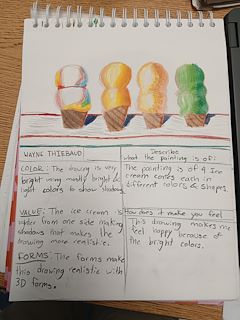 WAYNE THIEBAUD
COLOR: The drawing is very
bright using mostly bright &
light colors to show shadows
VALUE: The ice cream is
lighter from one side making
shadows that makes the
drawing more realistic.
FORMS: The forms make
this drawing realistic with
3D forms.
Describe
what the painting is of:
The painting is of 4 ice
cream cones each in
different colors & shapes.
How does it make you feel
This drawing makes me
feel happy because of
the bright colors.